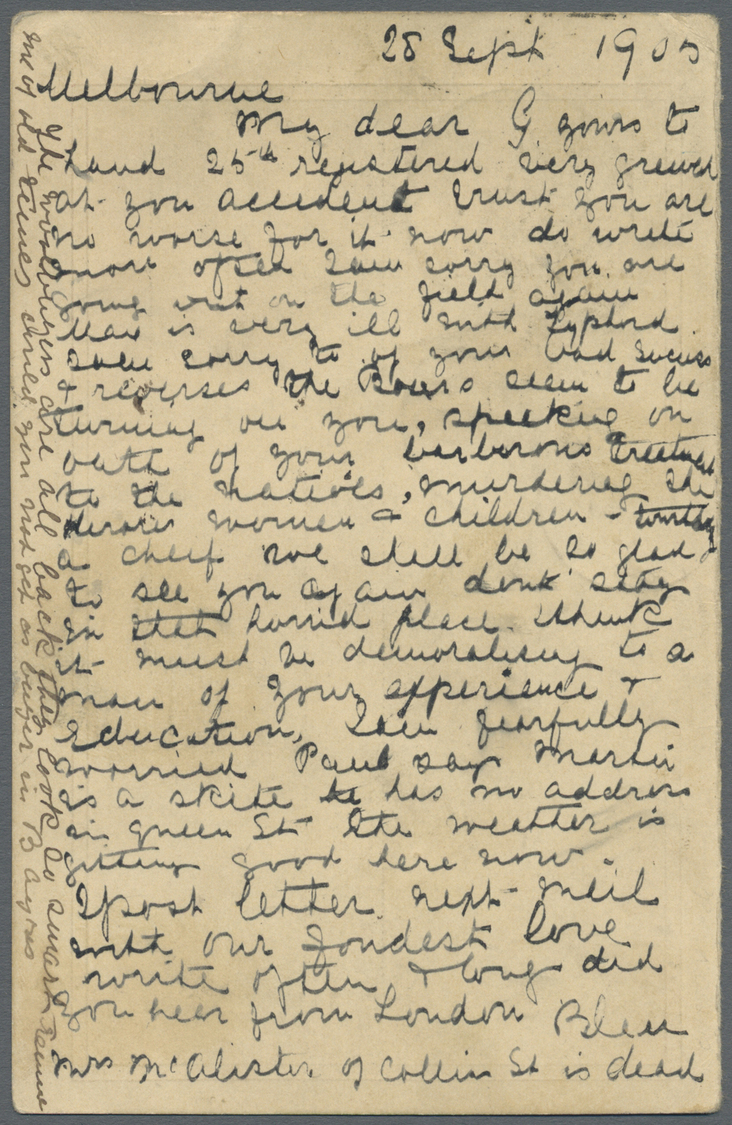 28 Sept 1905
Melbourne
My dear G yours to
hand 25th registered very greived
at you accedent trust you are
no worse for it now do write
more often I am sorry you are
going out on the field again
Max is very ill with typhord
I am sorry to of your bad sucuss
& reverses the Boers seem to be
turning on you, speeking on
oath of your barborous treatment
to the natives, murdering the
women & children -
a cheif we shell be so glad
to see you again dont stay
in that horrid place. I think
it must be demoralising to a
man of your experience &
Education, I am fearfully
worried Paul says Martin
is a skite he has no address
in queen St the weather is
getting good here now.
I post letter next meil
with our fondest love
write often & long did
you hear from London Bleu
Mrs McAlister of Collin St is dead
The are all back they look so smart
me of old times could you not get as buyer in B Ayres